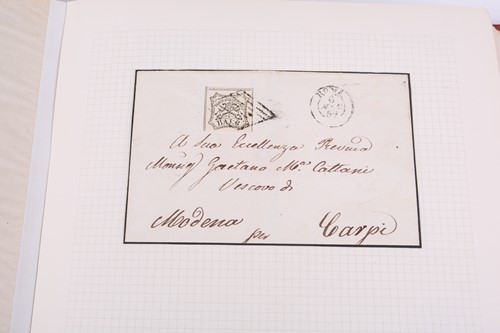 BAJ 6
ROMA
A Sua Eccellenza Revma
Monsig Gaetano Ma Cattani
Vescovo di
Modena per Carpi